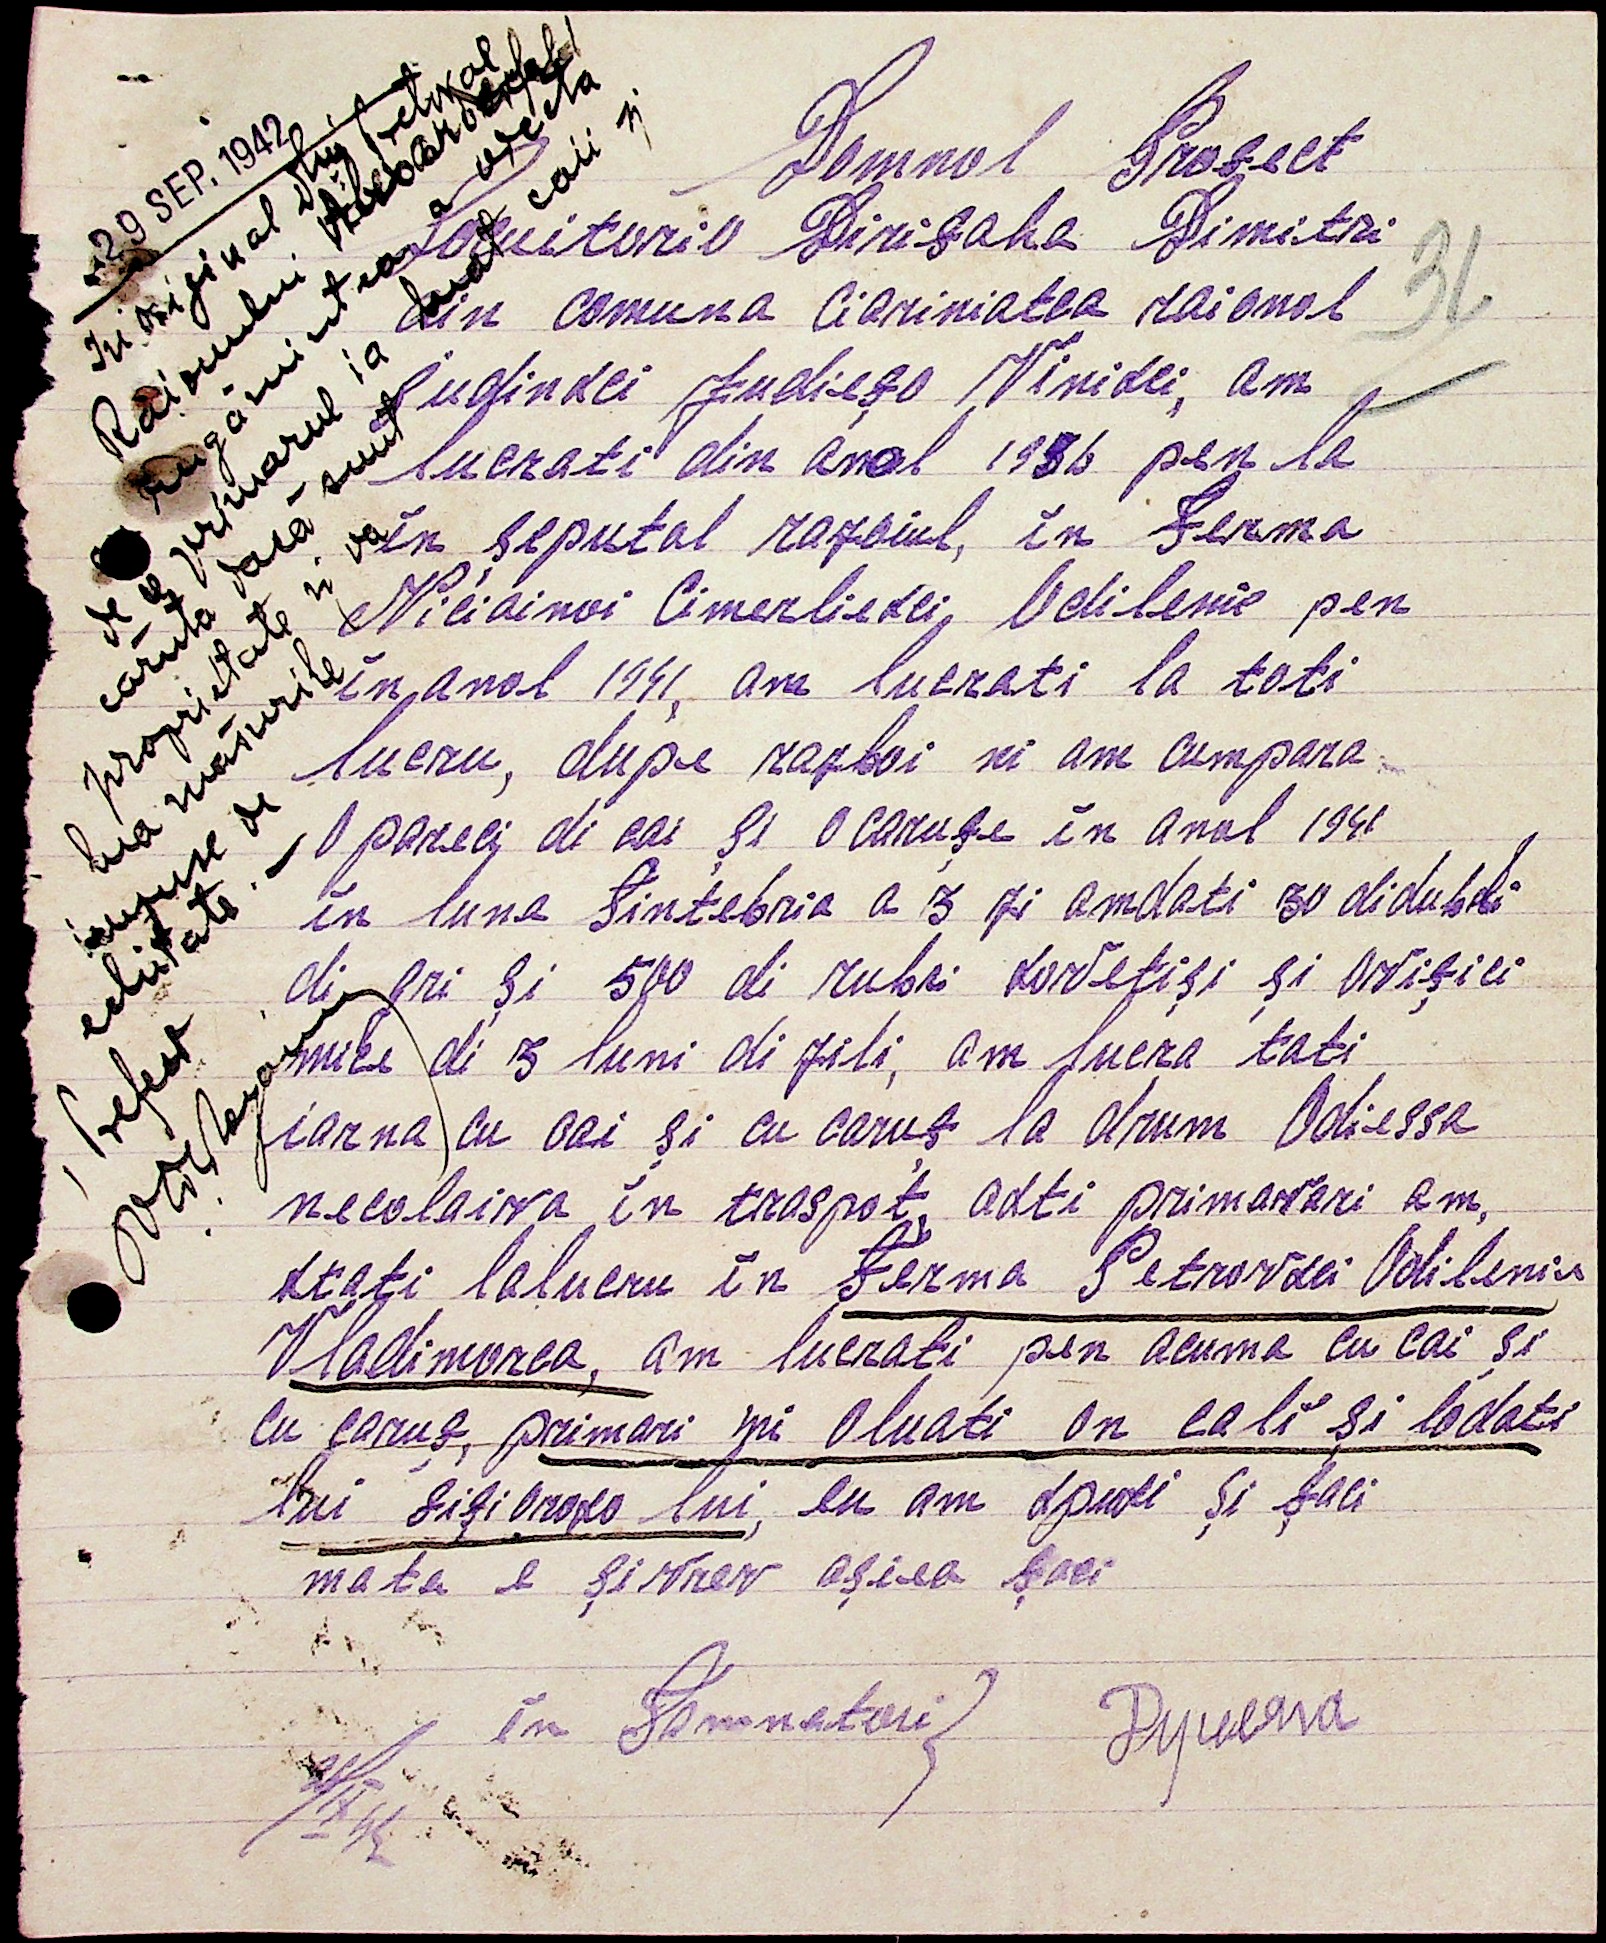 29 SEP. 1942
În original Dlui Pretor al
Raionului
rugămintea a
de primarul ia luat caii și
căruța dacă sunt
proprietate și va
lua măsurile
impuse de
echitate. —
Prefect
31
Domnol Profect
Locuitorio Dirigaha Dimitri
din comuna Ciariniatca raionol
Ludinxci Judiețo Vinixci, am
lucrati din anol 1936 pen la
în șeputal razoiul, în Ferma
Niciainoi Cimerliexci, Odilenie pen
în anol 1941, am lucrati la toti
lucru, dupe razboi ni am cumpara
O pareci di cai și o carușe în anol 1941
în luna Sintebria a 3 zi amdati 30 di
di gri și 500 di rubli xovetiși și
mici di 3 luni di zili, am lucra tati
iarna cu cai și cu caruș la drum Odiessa
necolaiva în traspot, axti primavari am,
xtati lalucru în Ferma Petrovxci Odilenie
Vladimorca, am lucrati pen acuma cu cai și
cu caruș, primari mi oluati on cali și lodati
lui lui, eu am xpuxi și faci
mata e și vrev așiea faci
în Somnatori